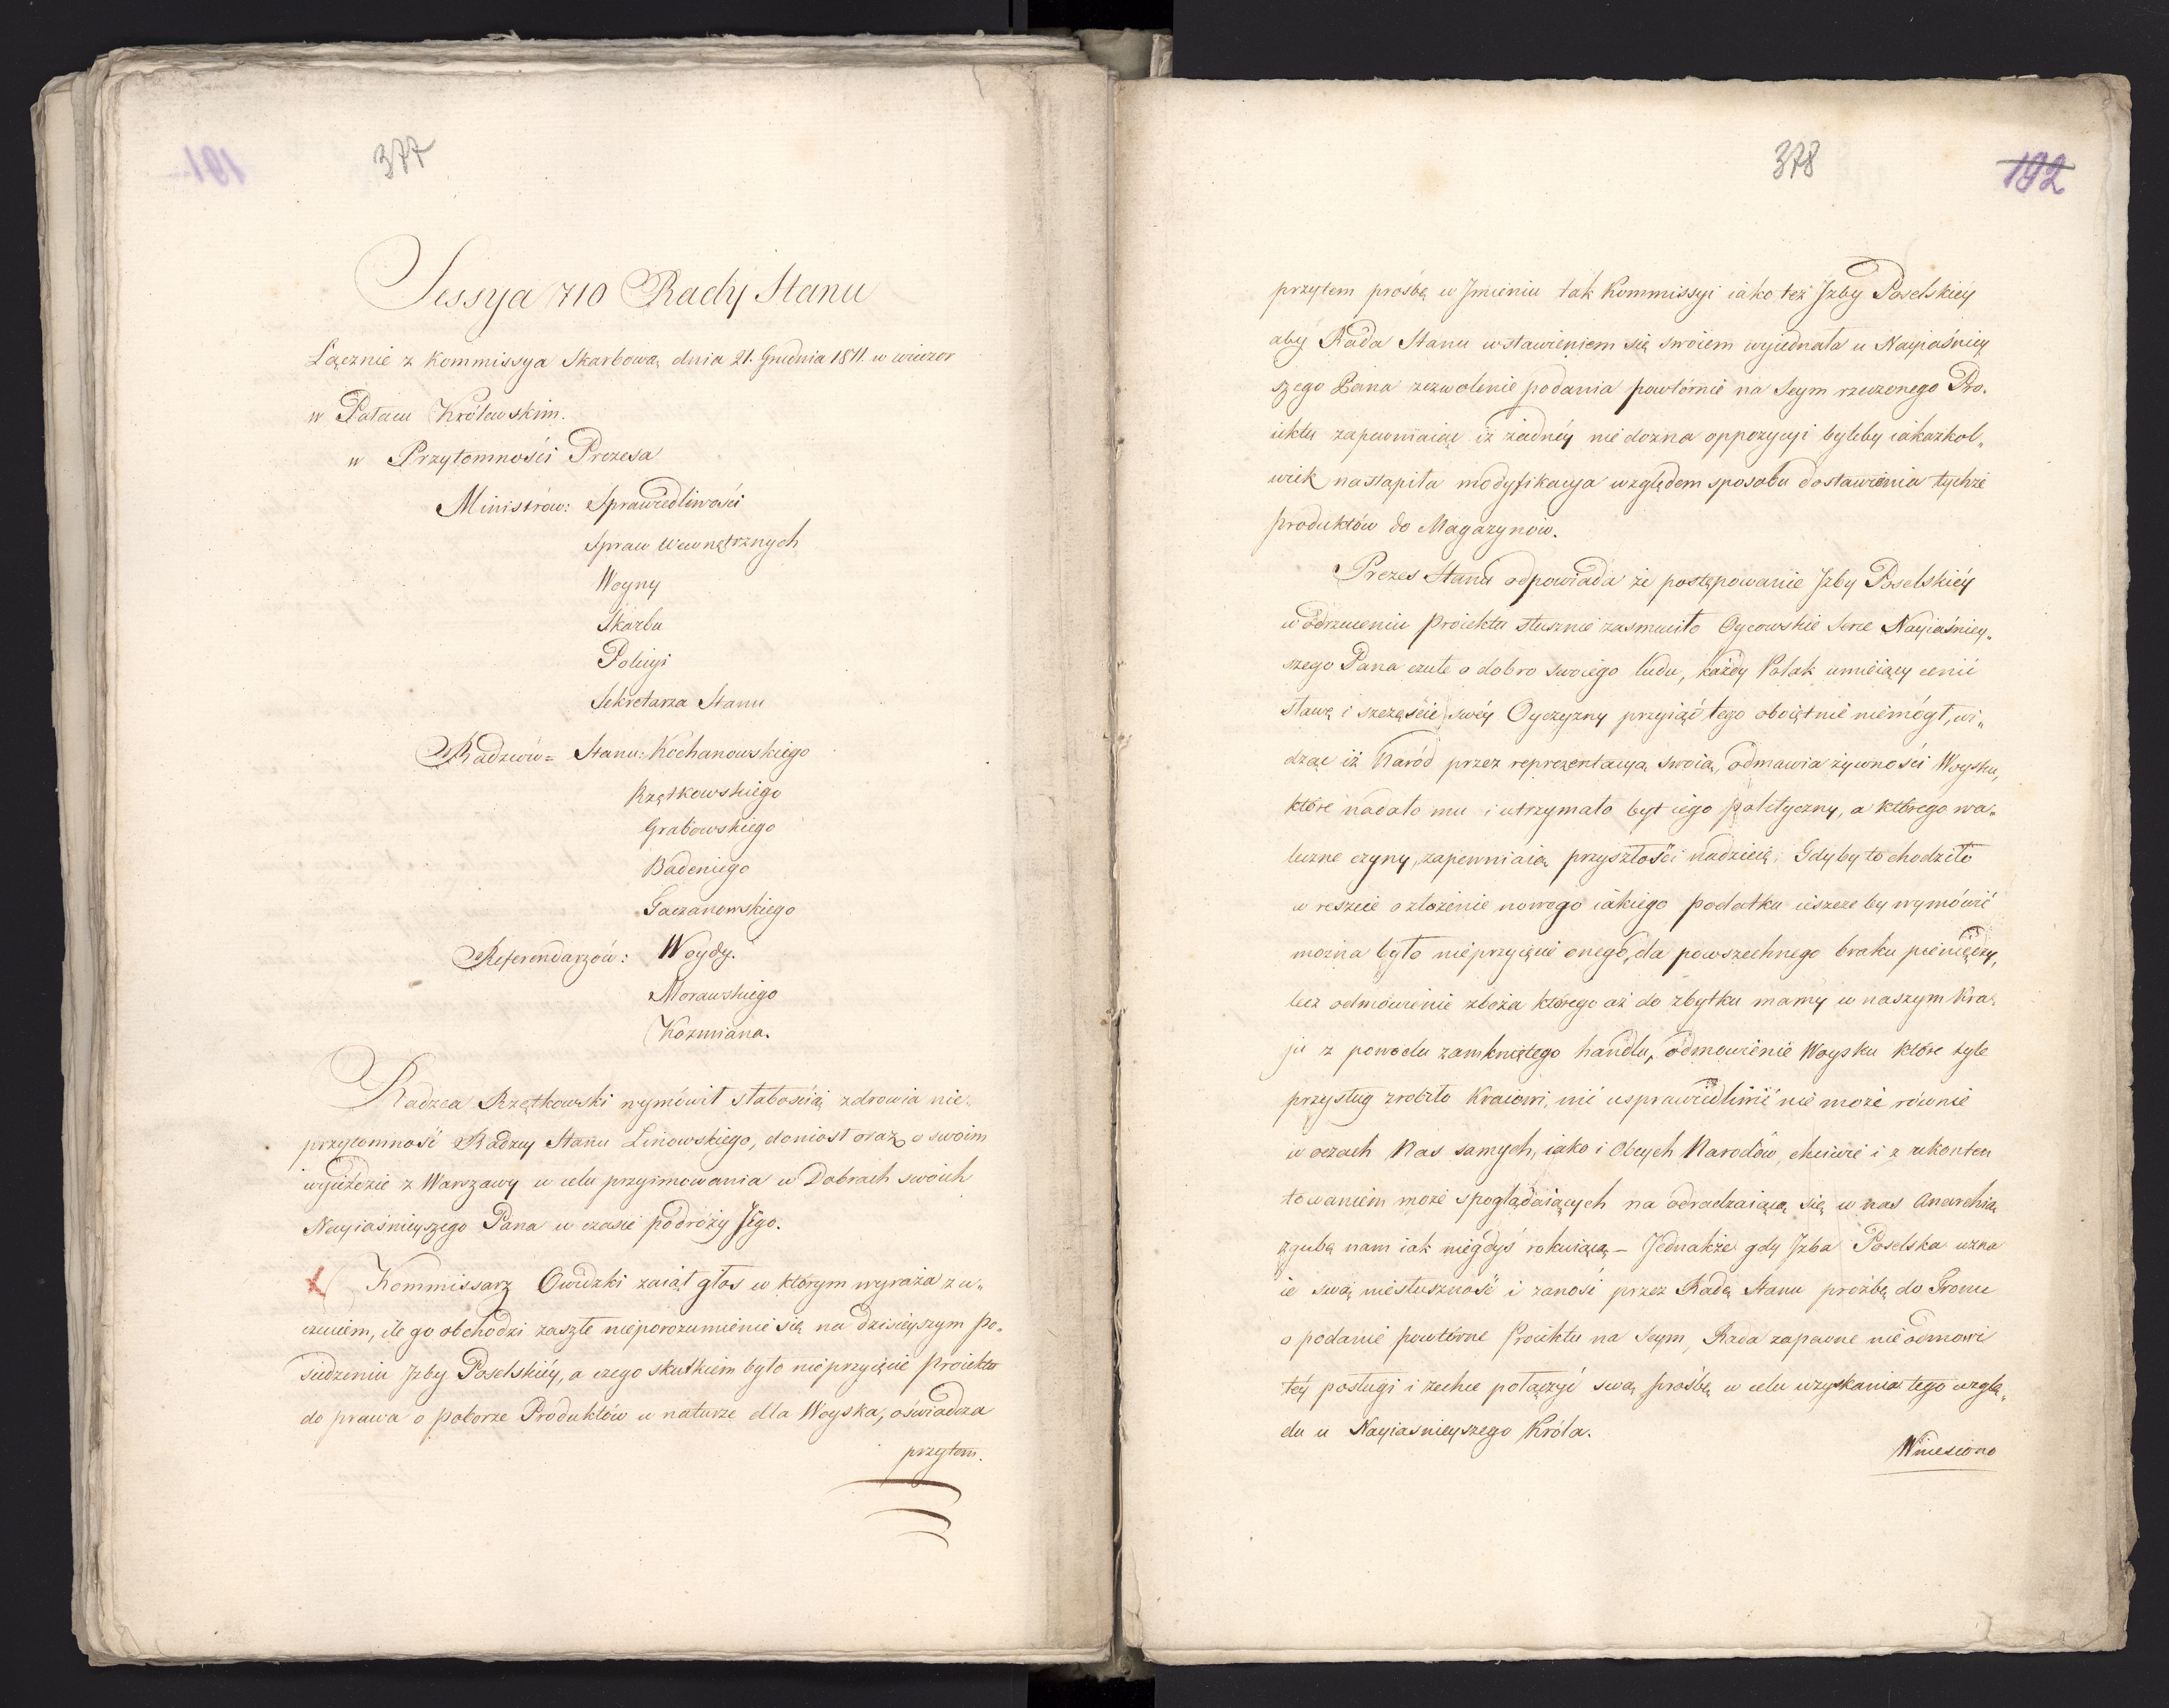 377
Sessya 710 Rady Stanu
Łącznie z Kommissyą Skarbową dnia 21. Grudnia 1811. w wieczor
w Pałacu Królewskim.
w Przytomności Prezesa
Ministrów: Sprawiedliwości
Spraw Wewnętrznych
Woyny
Skarbu
Policyi
Sekretarza Stanu
Radzców= Stanu: Kochanowskiego
Rzętkowskiego
Grabowskiego
Badeniego
Gaczanowskiego
Referendarzów: Woydy.
Morawskiego
Kozmiana.
Radzca Rzętkowski wymówił słabością zdrowia nie-
przytomność Radzcy Stanu Linowskiego, doniosł oraz o swoim
wyieździe z Warszawy w celu przyimowania w Dobrach swoich
Nayiaśnieyszego Pana w czasie podróży Jego.
Kommissarz Owidzki zaiął głos w którym wyraża z u„
czuciem, ile go obchodzi zaszłe nieporozumienie się na dzisieyszym po„
siedzeniu Izby Poselskiéy, a czego skutkiem było nieprzyięcie proiektu
do prawa o poborze Produktów w naturze dla Woyska, oświadcza
przytem.
378
192
przytem prośbę w Imieniu tak Kommissyi iako też Izby Poselskiéy
aby Rada Stanu wstawieniem się swoiem wyiednała u Nayiaśniey
szego Pana zezwolenie podania powtórnie na Seym rzeczonego Pro„
iektu zapewniaiąc iż żadnéy nie dozna oppozycyi byleby iakażkol„
wiek nastąpiła modyfikacya względem sposobu dostawienia tychże
produktów do Magazynów.
Prezes Stanu odpowiada że postępowanie Izby Poselskiéy
w odrzuceniu proiektu słusznie zasmuciło Oycowskie Serce Nayiaśniey„
szego Pana czułe o dobro swoiego ludu, każdy Polak umieiący cenić
sławę i szczęście swéy Oyczyzny przyiąć tego oboiętnie niemógł, wi„
dząc iż Naród przez reprezentacyą swoią, odmawia żywności Woysku,
które nadało mu i utrzymało byt iego polityczny, a którego wa„
leczne czyny, zapewniaią przyszłości nadzieię. Gdyby to chodziło
w reszcie o złożenie nowego iakiego podatku ieszcze by wymówić
można było nieprzyięcie onego, dla powszechnego braku pieniędzy,
lecz odmówienie zboża którego aż do zbytku mamy w naszym Kra„
ju z powodu zamkniętego handlu, odmówienie Woysku które tyle
przysług zrobiło Kraiowi, nic usprawiedliwić nie może równie
w oczach Nas samych, iako i Obcych Narodów, chciwie i z ukonten
towaniem może spoglądaiących na odradzaiącą się w nas Anarchią
zgubę nam iak niegdyś rokuiącą – Jednakże gdy Izba Poselska uzna
ie swą niesłuszność i zanosi przez Radę Stanu proźbę do Tronu
o podanie powtórne Proiektu na Seym, Rada zapewne nie odmowi
téy posługi i zechce połączyć swą prośbę w celu uzyskania tego wzglę„
du u Nayiaśnieyszego Króla.
Wniesiono